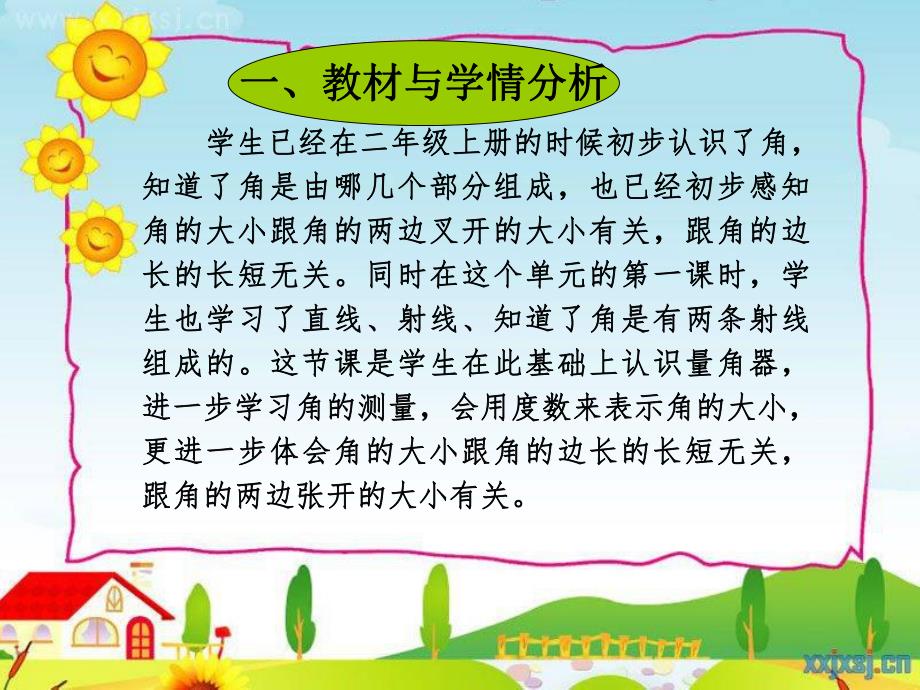 www.xxjxsj.cn
一、教材与学情分析
学生已经在二年级上册的时候初步认识了角，
知道了角是由哪几个部分组成，也已经初步感知
角的大小跟角的两边叉开的大小有关，跟角的边
长的长短无关。同时在这个单元的第一课时，学
生也学习了直线、射线、知道了角是有两条射线
组成的。这节课是学生在此基础上认识量角器，
进一步学习角的测量，会用度数来表示角的大小，
更进一步体会角的大小跟角的边长的长短无关，
跟角的两边张开的大小有关。
xxjxsj.cn